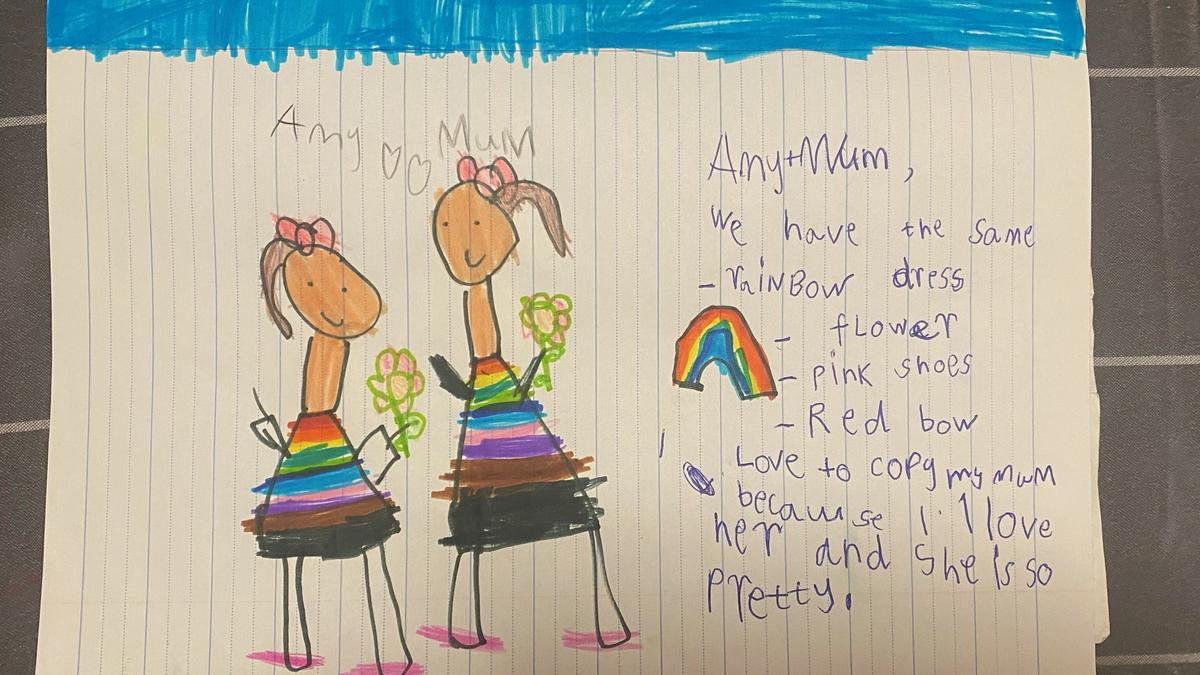 Amy ♡♡ Mum
Amy+Mum,
We have the same
- rainBow dress
- fLower
- pink shoes
- Red bow
I Love to copy my mum
because I I love
her and she is so
pretty.